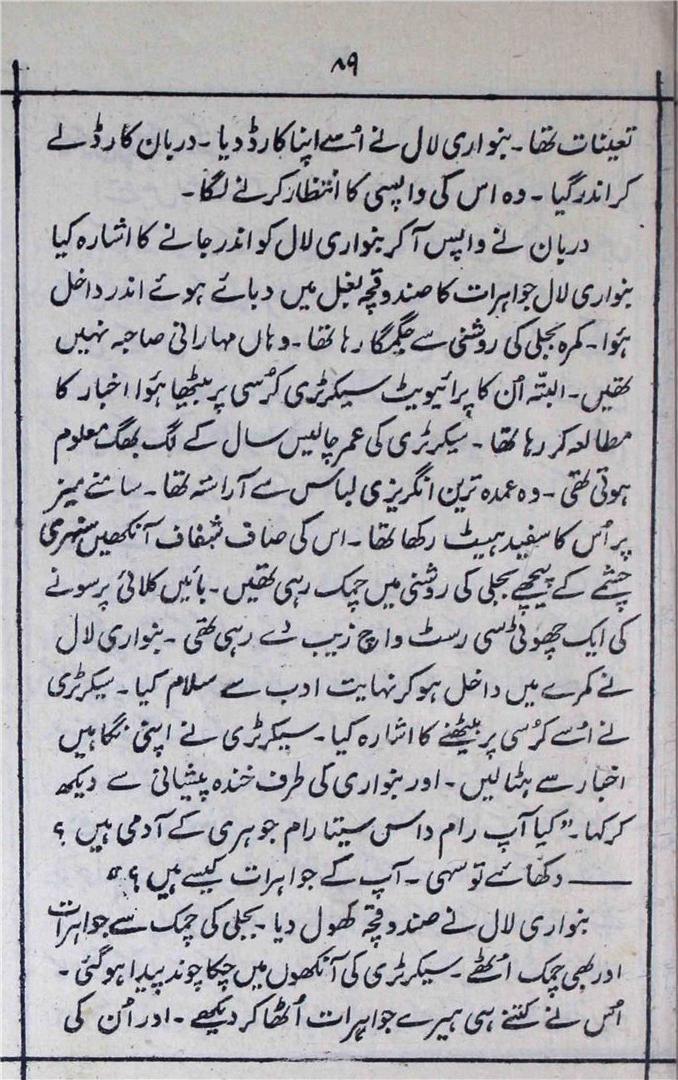 ۸۹
تعینات تھا۔ بنواری لال نے اُسے اپنا کارڈ دیا۔ دربان کارڈ لے
کر اندر گیا۔ وہ اس کی واپسی کا انتظار کرنے لگا۔
دربان نے واپس آ کر بنواری لال کو اندر جانے کا اشارہ کیا
بنواری لال جواہرات کا صندوقچہ بغل میں دبائے ہوئے اندر داخل
ہُوا۔ کمرہ بجلی کی روشنی سے جگمگا رہا تھا۔ وہاں مہارانی صاحبہ نہیں
تھیں۔ البتّہ اُن کا پرائیویٹ سیکرٹری کُرسی پر بیٹھا ہُوا اخبار کا
مطالعہ کر رہا تھا۔ سیکرٹری کی عمر چالیس سال کے لگ بھگ معلوم
ہوتی تھی۔ وہ عمدہ ترین انگریزی لباس سے آراستہ تھا۔ سامنے میز
پر اُس کا سفید ہیٹ رکھا تھا۔ اس کی صاف شفاف آنکھیں سنہری
چشمے کے پیچھے بجلی کی روشنی میں چمک رہی تھیں۔ بائیں کلائی پر سونے
کی ایک چھوٹی سی رسٹ واچ زیب دے رہی تھی۔ بنواری لال
نے کمرے میں داخل ہو کر نہایت ادب سے سلام کیا۔ سیکرٹری
نے اُسے کرُسی پر بیٹھنے کا اشارہ کیا۔ سیکرٹری نے اپنی نگاہیں
اخبار سے ہٹا لیں۔ اور بنواری کی طرف خندہ پیشانی سے دیکھ
کر کہا۔ "کیا آپ رام داس سیتا رام جوہری کے آدمی ہیں ؟
—— دکھائے تو سہی۔ آپ کے جواہرات کیسے ہیں ؟"
بنواری لال نے صندوقچہ کھول دیا۔ بجلی کی چمک سے جواہرات
اور بھی چمک اُٹھے۔ سیکرٹری کی آنکھوں میں چکاچوند پیدا ہو گئی۔
اُس نے کتنے ہی ہیرے جواہرات اُٹھا کر دیکھے۔ اور اُن کی